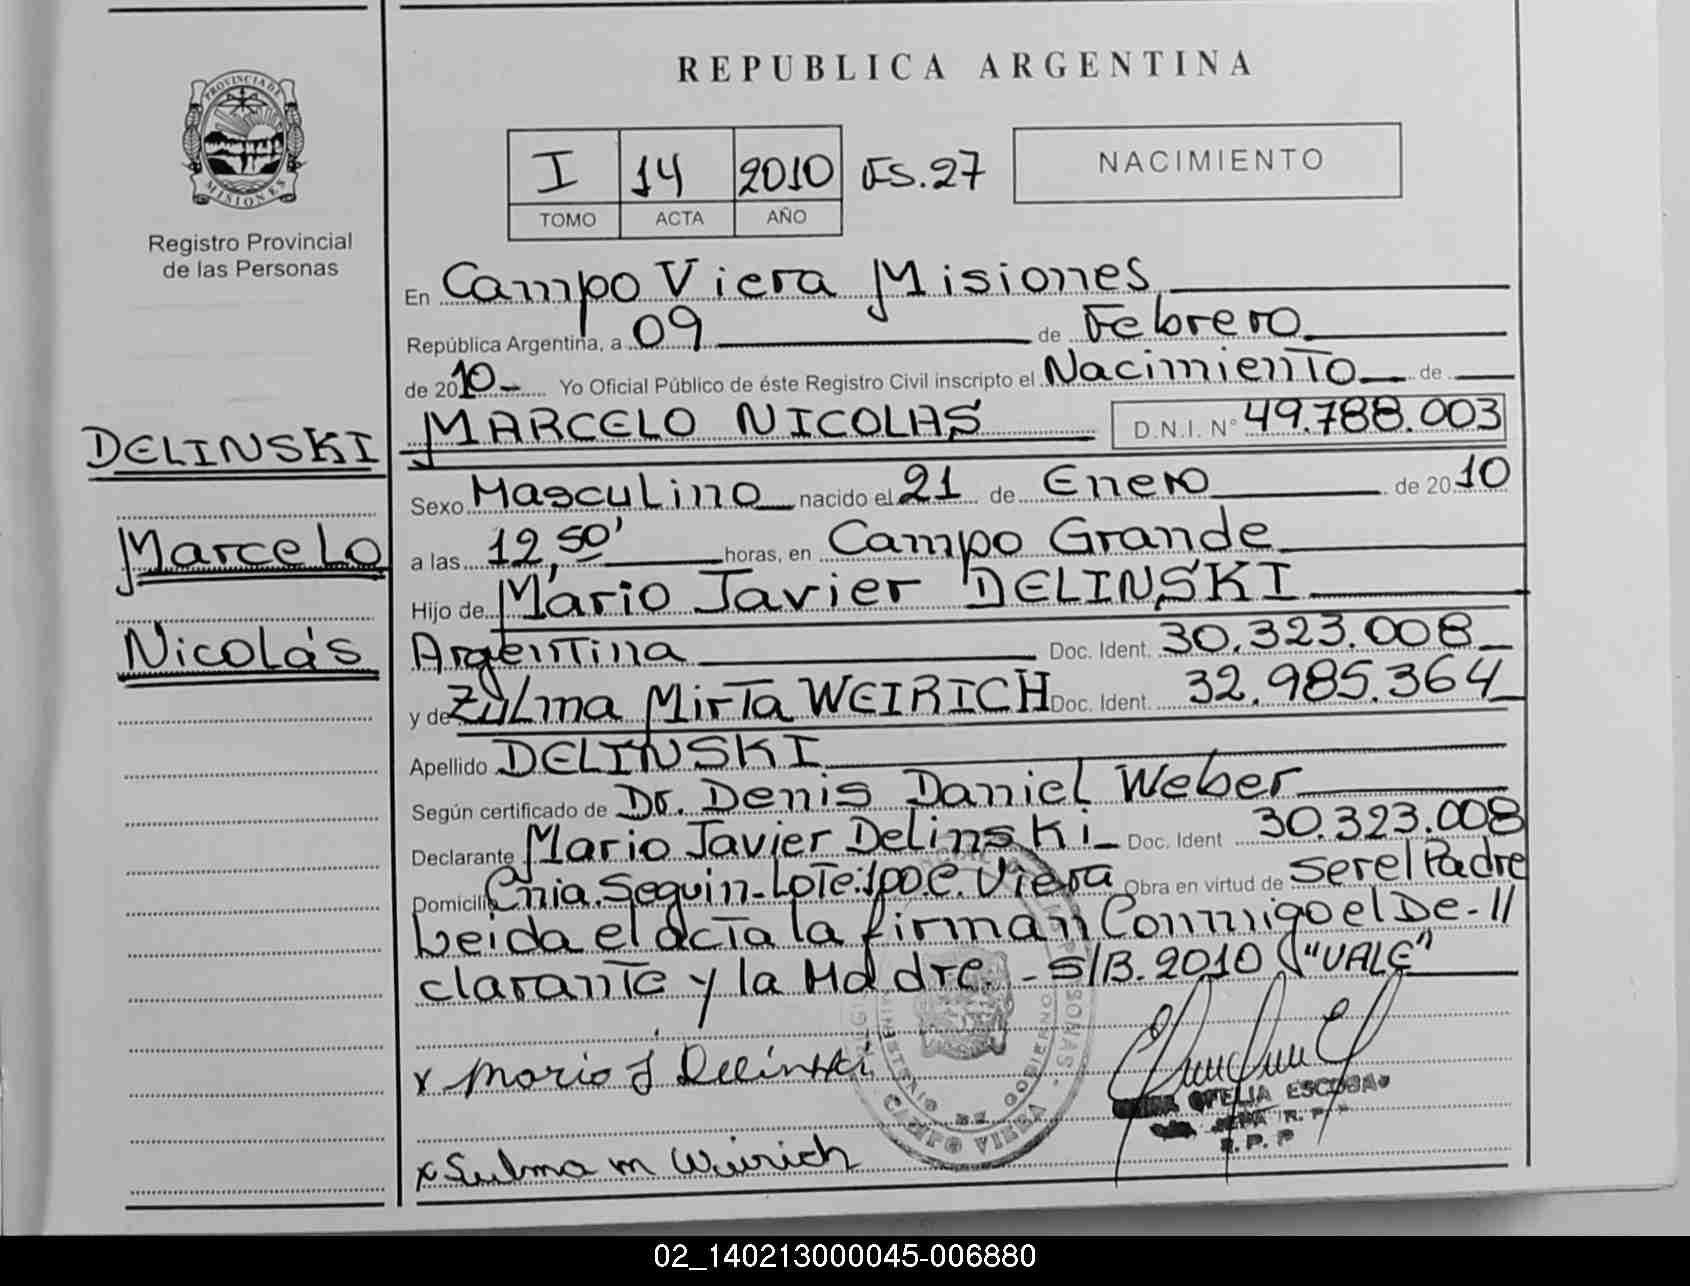 REPUBLICA ARGENTINA
PROVINCIA DE
MISIONES
Registro Provincial
de las Personas
I 14 2010 FS.27
TOMO ACTA AÑO
NACIMIENTO
DELINSKI
Marcelo
Nicolás
En Campo Viera Misiones
República Argentina, a 09 de Febrero
de 2010 Yo Oficial Público de éste Registro Civil inscripto el Nacimiento de
MARCELO NICOLAS D.N.I. N° 49.788.003
Sexo Masculino nacido el 21 de Enero de 2010
a las 12,50' horas, en Campo Grande
Hijo de Mario Javier DELINSKI
Argentina Doc. Ident. 30.323.008
y de Zulma Mirta WEIRICH Doc. Ident. 32.985.364
Apellido DELINSKI
Según certificado de Dr. Denis Daniel Weber
Declarante Mario Javier Delinski Doc. Ident 30.323.008
Domicilio Cnia. Seguin-Lote:100.C. Viera Obra en virtud de ser el Padre
Leida el acta la firman Conmigo el De-//
clarante y la Madre.-S/B.2010 "VALE"
x Mario J Delinski
x Sulma m Weirich
CAMPO VIERA
OFELIA ESCOBAR
R.P.P
02_140213000045-006880